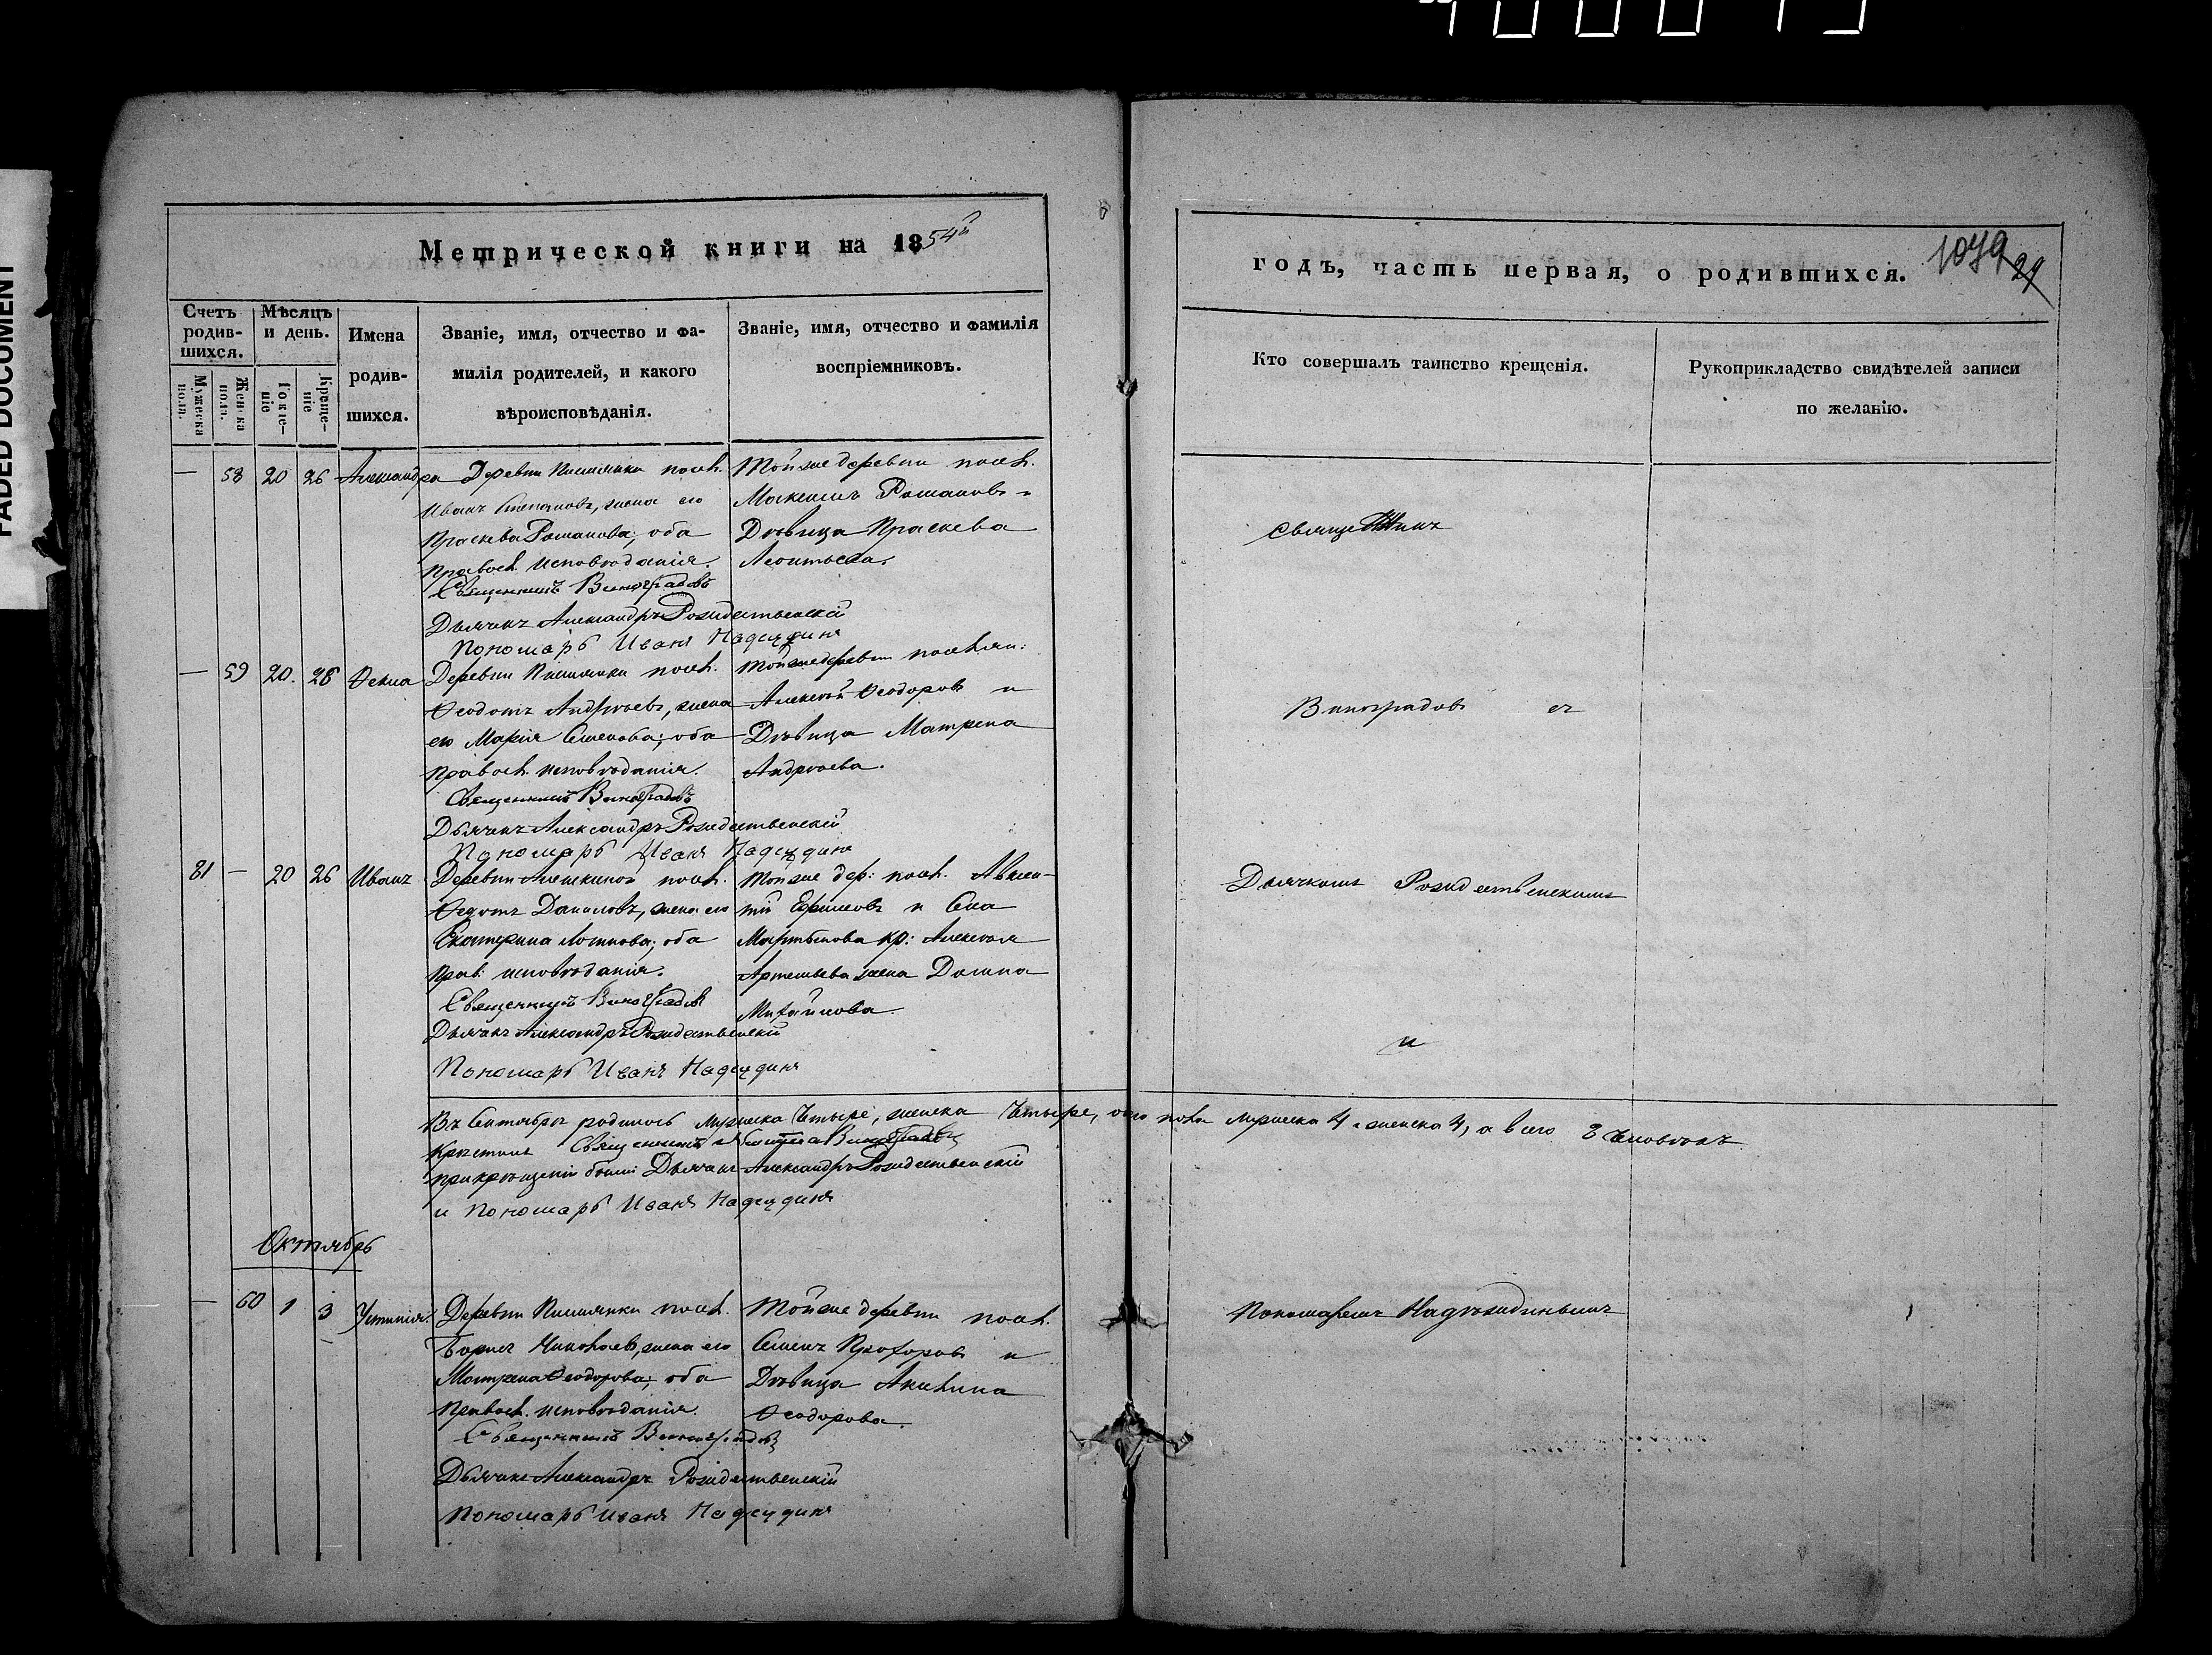 FADED DOCUMENT
Метрической книги на 1854й
годъ, часть первая, о родившихся.
1079
29
Счетъ родив-шихся.
Мужеска пола.
Женска пола.
Мѣсяцъ и день.
Рожде-ніе
Креще-ніе
Имена родив-шихся.
Званіе, имя, отчество и фа-
милія родителей, и какого
вѣроисповѣданія.
Званіе, имя, отчество и фамилія
воспріемниковъ.
Кто совершалъ таинство крещенія.
Рукоприкладство свидѣтелей записи
по желанію.
— 58 20 26 Александра
Деревни посел.
Иванъ Степановъ, жена его
Праскева Романова; оба
правосл. исповѣданія.
Тойже деревни посел.
Максимъ Романовъ и
Дѣвица Праскева
Леонтьева.
Священникъ Виноградовъ
Дьячекъ Александръ Рождественскій
Пономарь Иванъ Надеждинъ
— 59 20. 28 Ѳекла
Деревни посел.
Ѳеодотъ Андрѣевъ, жена
его Марія Семенова; оба
правосл. исповѣданія.
Тойже деревни поселян:
Алексѣй Ѳеодоровъ и
Дѣвица Матрена
Андрѣева.
Священникъ Виноградовъ
Дьячекъ Александръ Рождественскій
Пономарь Иванъ Надеждинъ
81 — 20 26 Иванъ
Деревни Алешкиной посел.
Ѳедотъ Даниловъ, жена его
Екатерина Логинова; оба
прав: исповѣданія.
Тойже дер: посел. Авксен-
тій Ефимовъ и
Мартынова кр: Алексѣя
Артемьева жена Домна
Михайлова
Священникъ Виноградовъ
Дьячекъ Александръ Рождественскій
Пономарь Иванъ Надеждинъ
Въ Сентябрѣ родилось мужеска четыре, женска четыре, обоего пола мужеска 4 и женска 4, а всего 8 человѣкъ
Крестилъ Священникъ Виноградовъ
при крещеніи были Дьячекъ Александръ Рождественскій
и Пономарь Иванъ Надеждинъ
Октябрь
— 60 1 3 Устинія.
Деревни посел.
Борисъ Николаевъ, жена его
Матрена Ѳеодорова; оба
правосл. исповѣданія.
Тойже деревни посел.
Семенъ Прохоровъ и
Дѣвица Акилина
Ѳеодорова.
Священникъ Виноградовъ
Дьячекъ Александръ Рождественскій
Пономарь Иванъ Надеждинъ
Священникъ
Виноградовъ съ
Дьячкомъ Рождественскимъ
и
Пономаремъ Надѣждинымъ